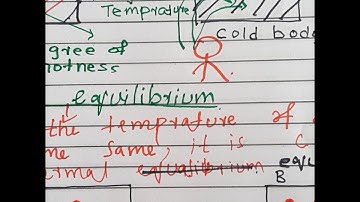 Temprature
cold bod
gree of
otness
equilibrium
the temprature of
me same, it is C
rmal equalibrium equ
B